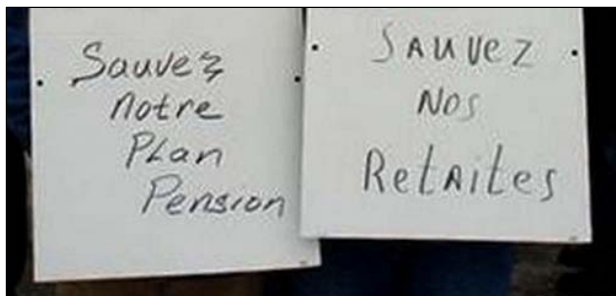 Sauvez
notre
Plan
Pension
SAUVEZ
NOS
RetAites